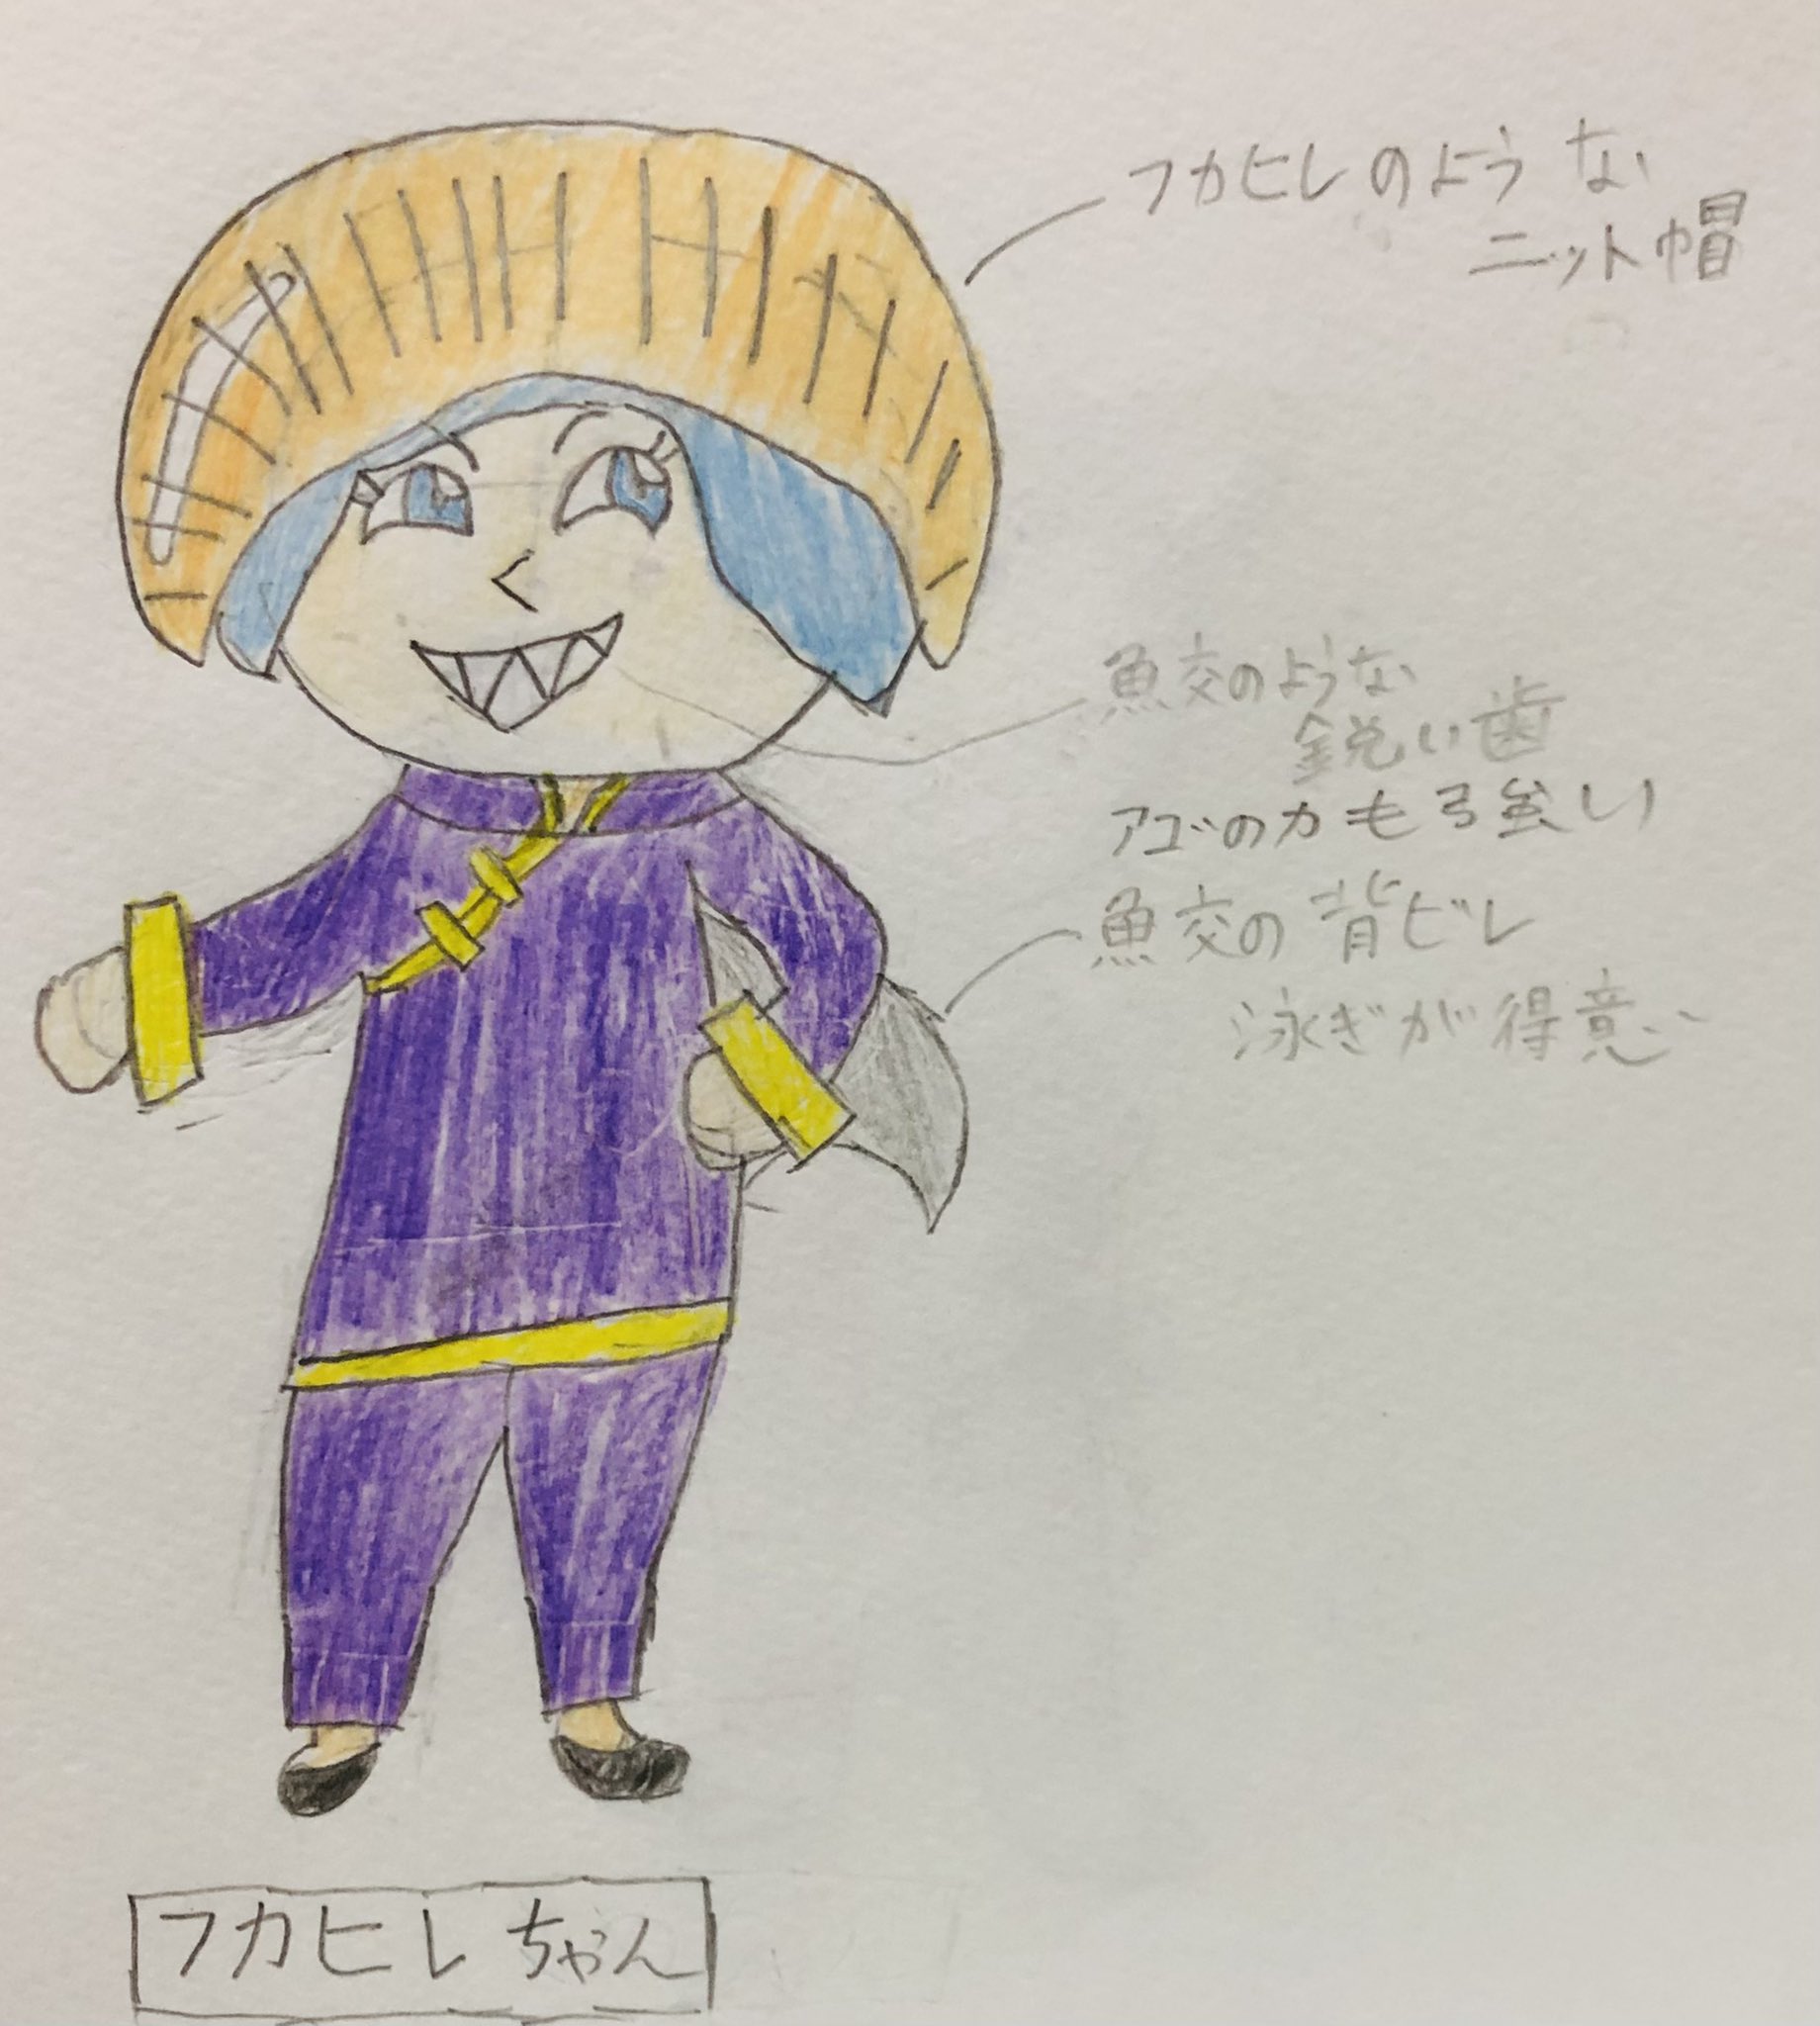 フカヒレのような
ニット帽
鮫のような
鋭い歯
アゴの力も強い
鮫の背ビレ
泳ぎが得意
フカヒレちゃん